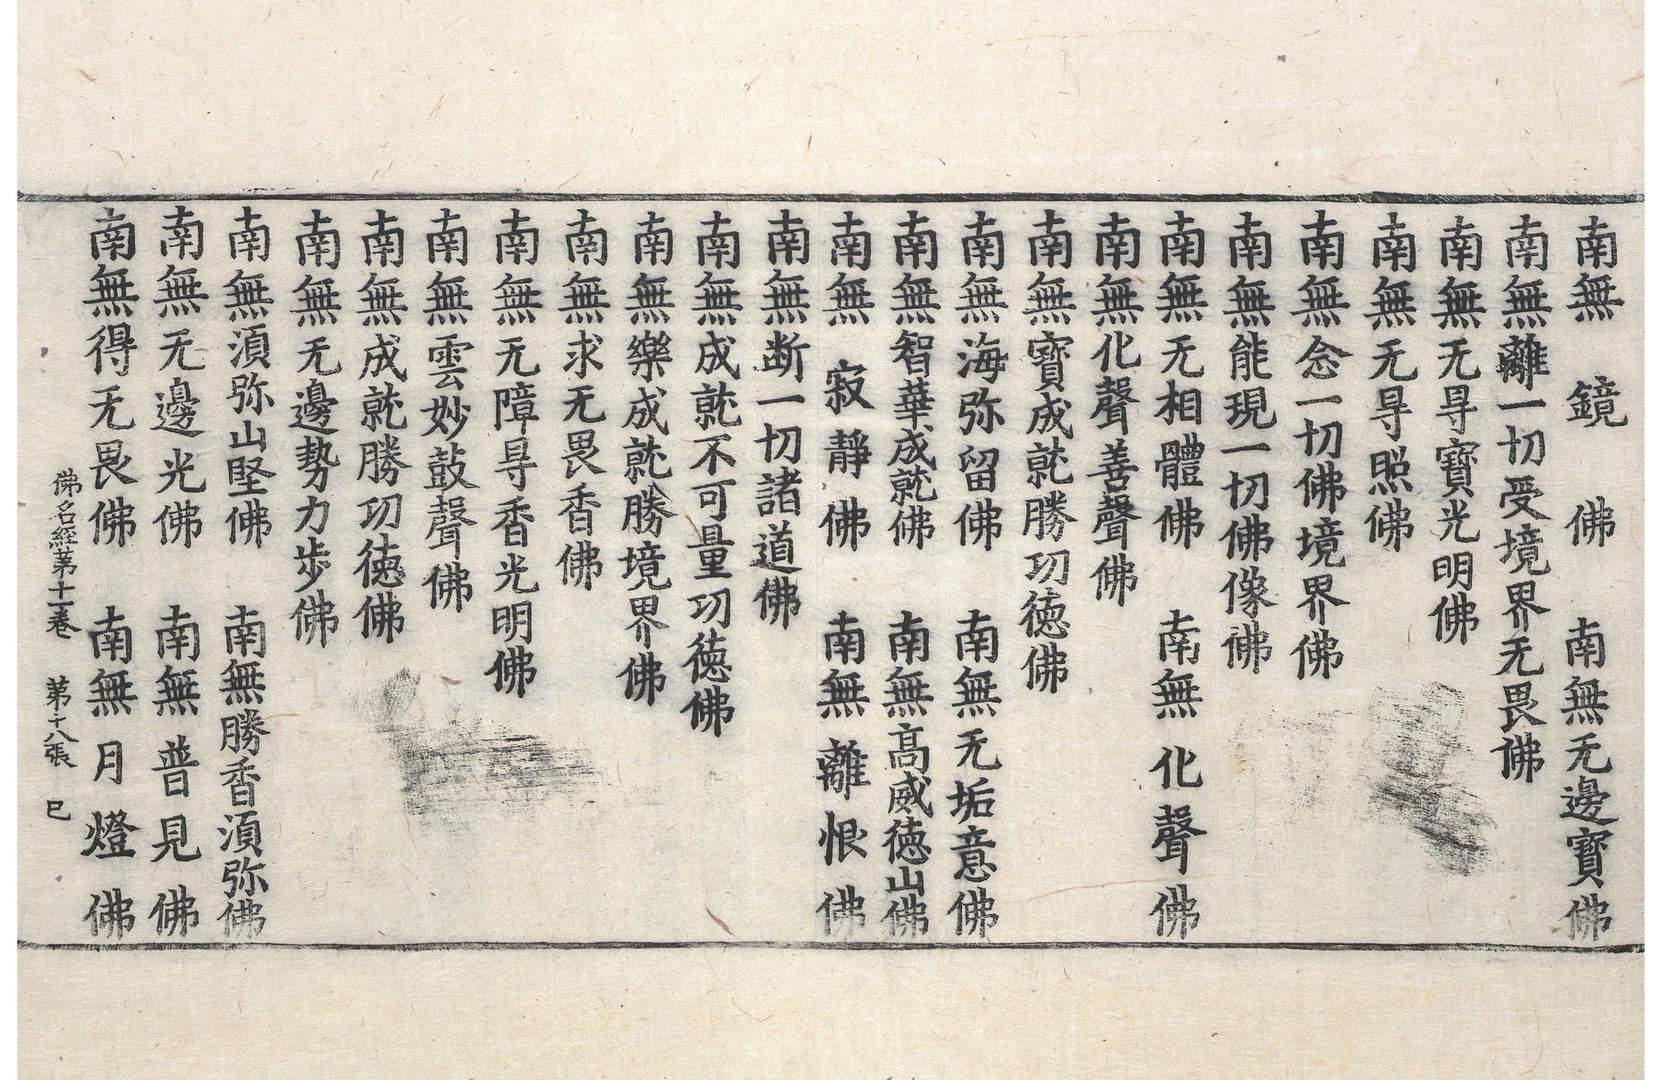 南無鏡佛　南無无邊寶佛
南無離一切受境界无畏佛
南無无㝵寶光明佛
南無无㝵照佛
南無念一切佛境界佛
南無能現一切佛像佛
南無无相體佛　南無化聲佛
南無化聲善聲佛
南無寶成就勝㓛德佛
南無海弥留佛　南無无垢意佛
南無智華成就佛　南無髙威德山佛
南無寂靜佛　南無離恨佛
南無断一切諸道佛
南無成就不可量㓛德佛
南無樂成就勝境界佛
南無求无畏香佛
南無无障㝵香光明佛
南無雲妙鼓聲佛
南無成就勝㓛德佛
南無无邊勢力步佛
南無湏弥山堅佛　南無勝香湏弥佛
南無无邊光佛　南無普見佛
南無得无畏佛　南無月燈佛
佛名經第十一卷　第十八張　巳